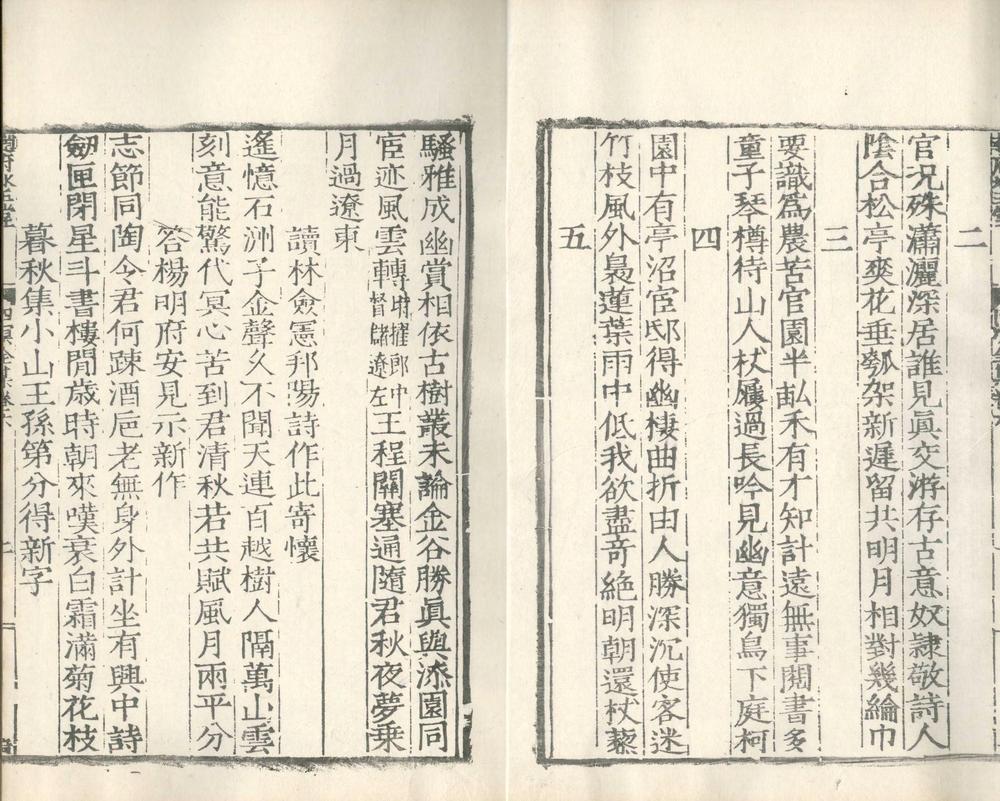 二
官况殊瀟灑深居誰見眞交游存古意奴隷敬詩人
陰合松亭爽花垂瓠架新遲留共明月相對幾綸巾
三
要識爲農苦官園半畝禾有才知計遠無事閱書多
童子琴樽待山人杖屨過長吟見幽意獨鳥下庭柯
四
園中有亭沼宦邸得幽棲曲折由人勝深沉使客迷
竹枝風外裊蓮葉雨中低我欲盡奇絶明朝還杖藜
五
騷雅成幽賞相依古樹叢未論金谷勝眞與漆園同
宦迹風雲轉時擢郎中督儲遼左王程關塞通隨君秋夜夢乗
月過遼東
讀林僉憲邦陽詩作此寄懷
遙憶石洲子金聲久不聞天連百越樹人隔萬山雲
刻意能驚代冥心苦到君清秋若共賦風月兩平分
答楊明府安見示新作
志節同陶令君何踈酒巵老無身外計坐有興中詩
劒匣閉星斗書樓閒歳時朝來嘆衰白霜滿菊花枝
暮秋集小山王孫第分得新字